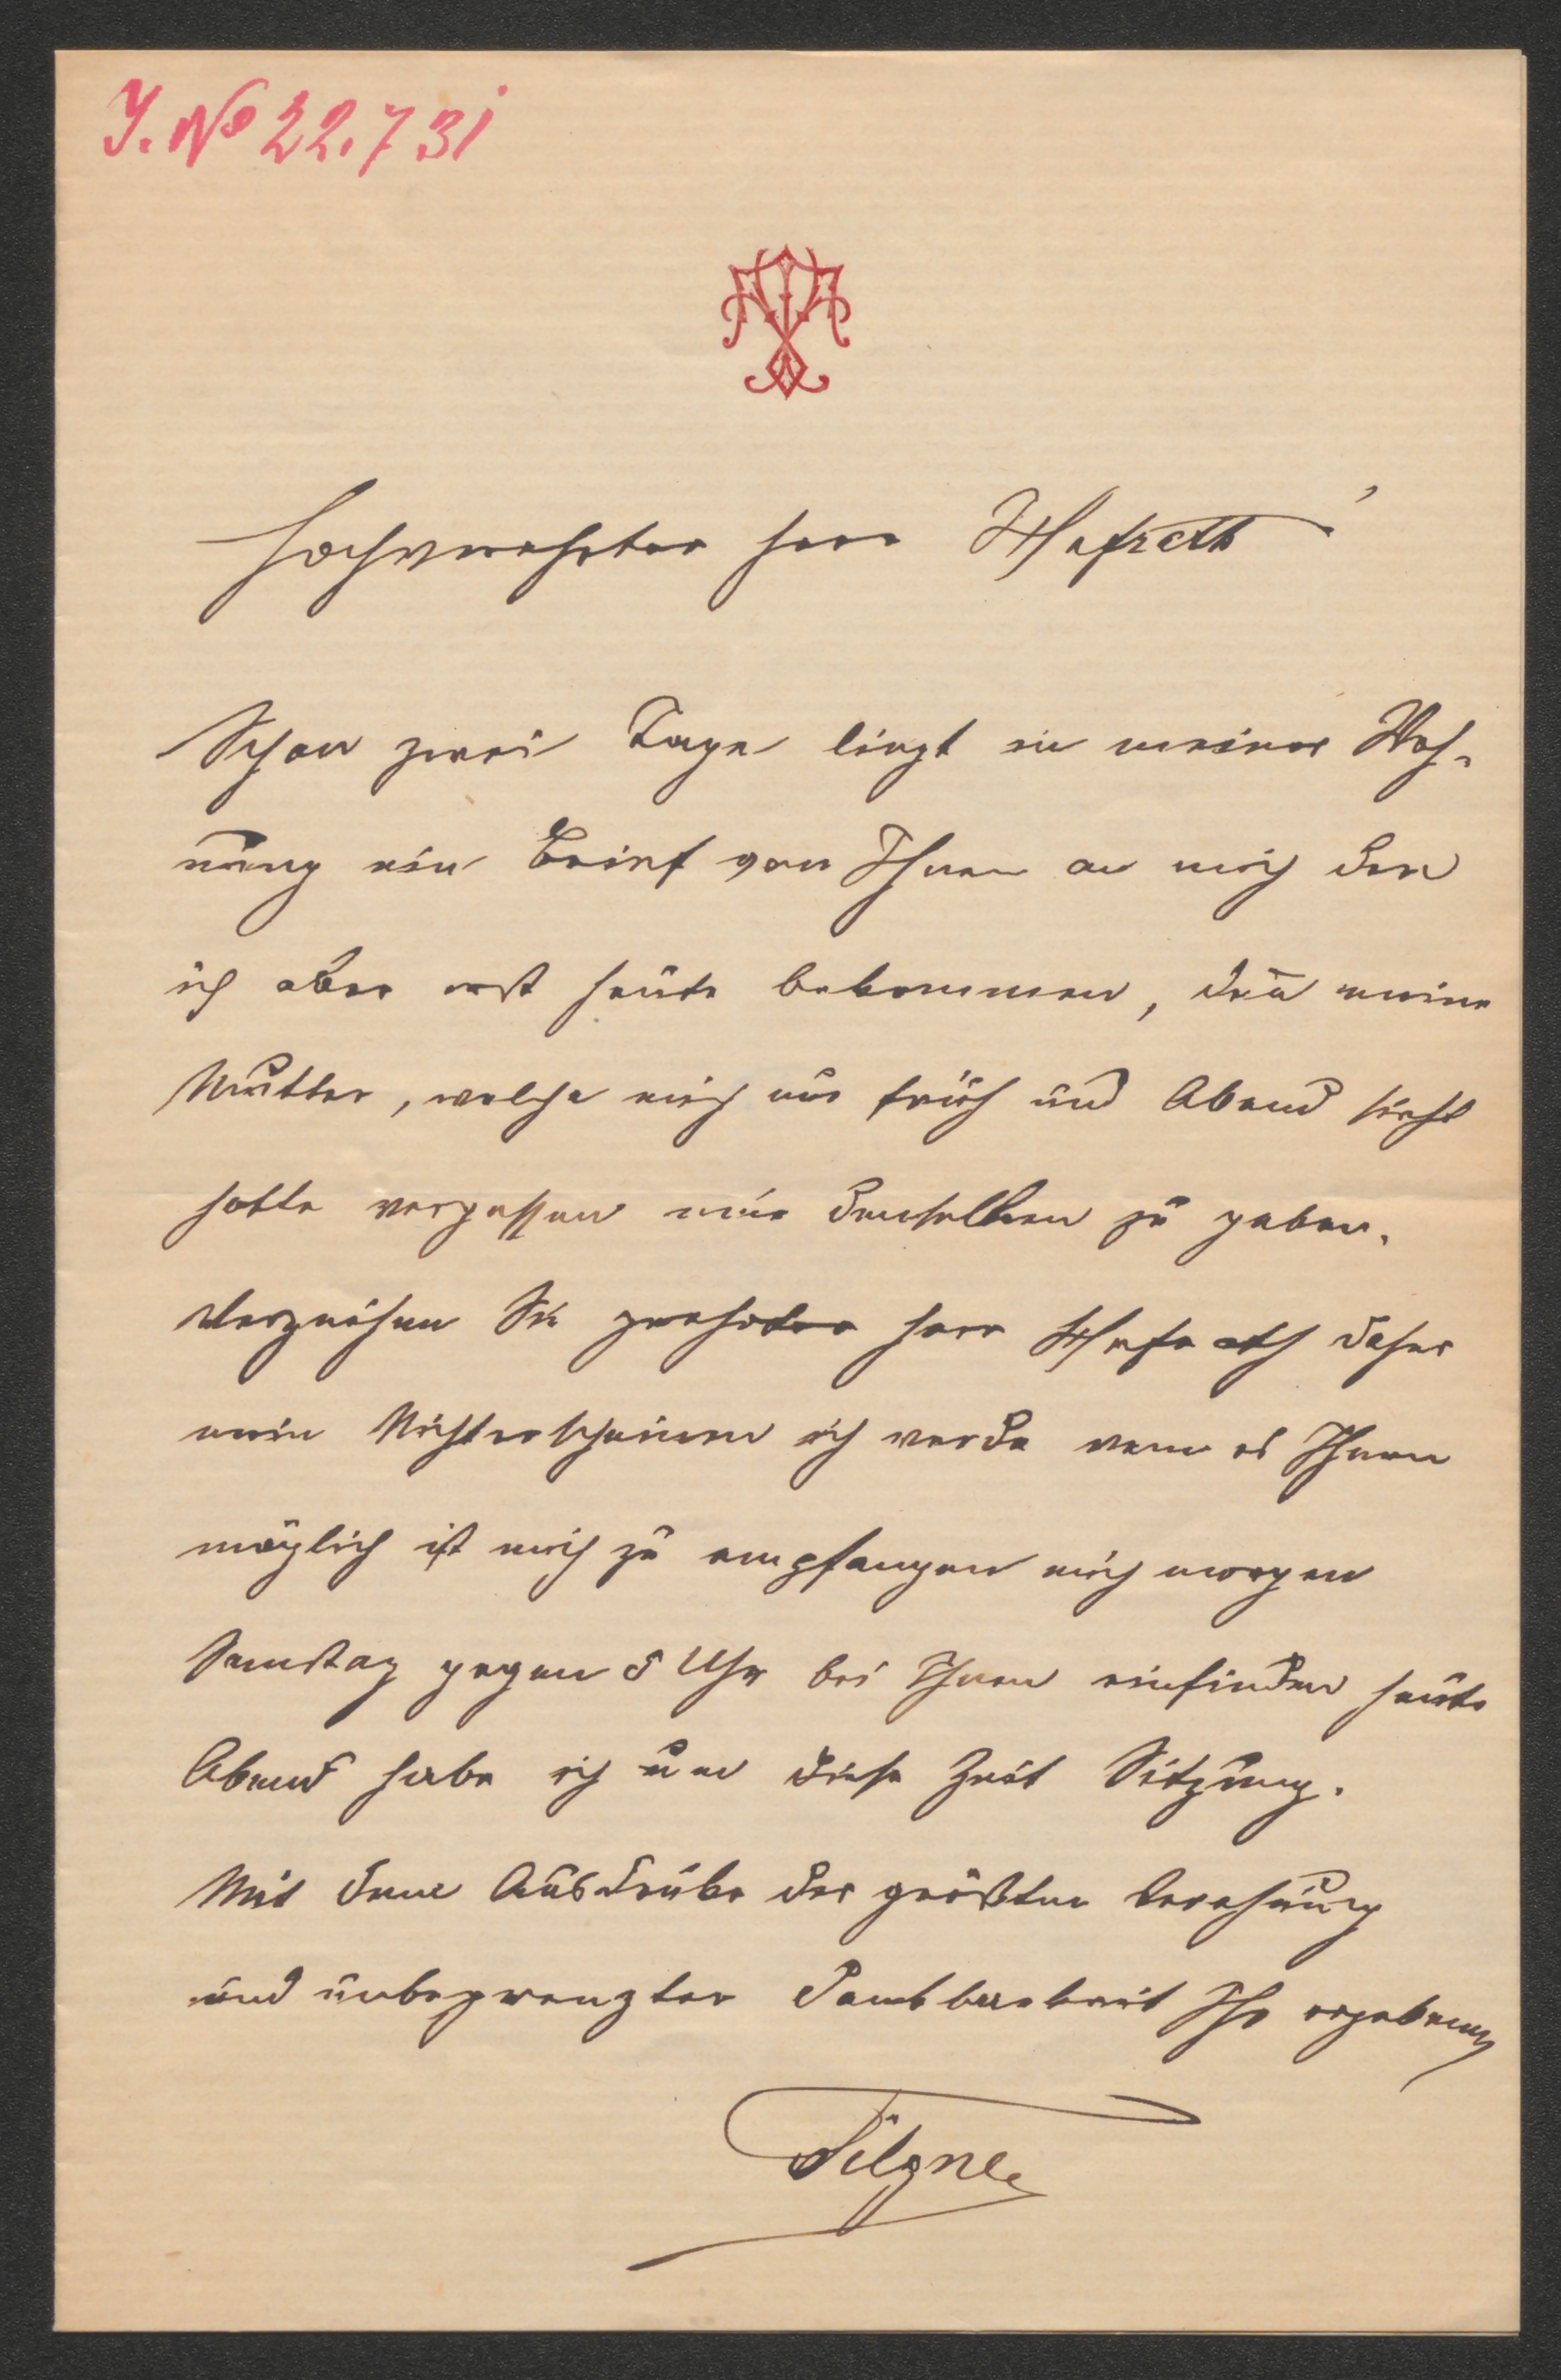 J. No 22.731
Hochverehrter Herr Hofrath
Schon zwei Tage liegt in meiner Woh-
nung ein Brief von Ihnen an mich den
ich aber erst heute bekommen, den̄ meine
Mutter, welche mich nur früh und Abend sieht
hatte vergessen mir denselben zu geben.
Verzeihen Sie geehrter Herr Hofrath daher
mein Nichterscheinen ich werde wenn es Ihnen
möglich ist mich zu empfangen mich morgen
Samstag gegen 5 Uhr bei Ihnen einfinden heute
Abend habe ich um diese Zeit Sitzung.
Mit dem Ausdrucke der größten Verehrung
und unbegrenzter Dankbarkeit Ihr ergebener
Tilgner